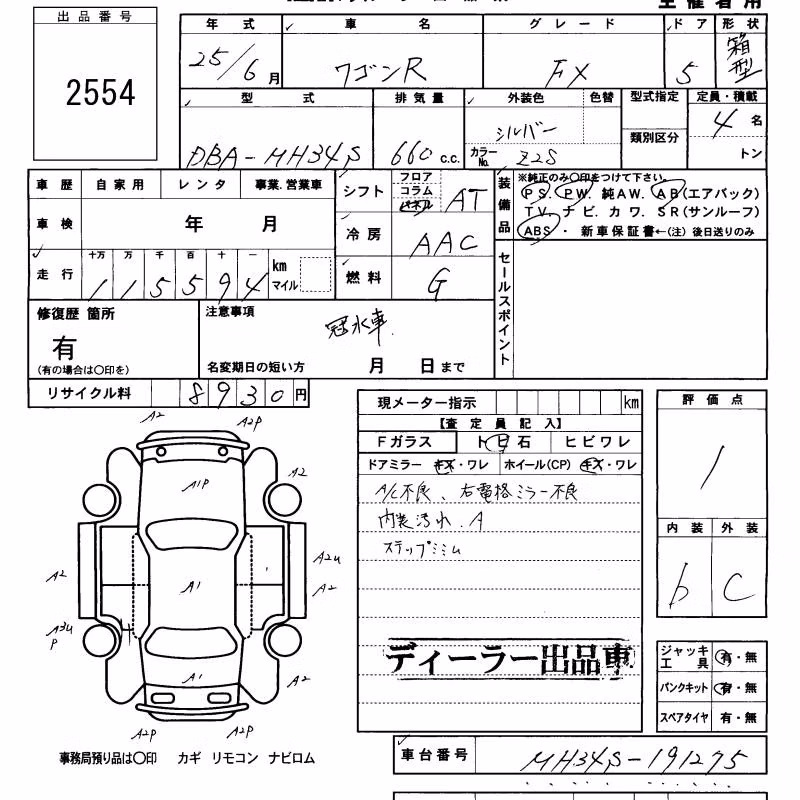 出品番号
2554
年式 車名 グレード ドア 形状
25/6月 ワゴンR FX 5 箱型
型式 排気量 外装色 色替 型式指定 定員・積載
DBA-MH34S 660 c.c. シルバー 類別区分 4名
カラーNo. Z2S トン
車歴 自家用 レンタ 事業.営業車
車検 年 月
走行 十万 万 千 百 十 一 km マイル
115594
シフト フロア コラム パネル AT
冷房 AAC
燃料 G
装備品 ※純正のみ〇印をつけて下さい。
PS. PW. 純AW. AB(エアバック)
TV. ナビ. カワ. SR(サンルーフ)
ABS ・ 新車保証書←(注) 後日送りのみ
セールスポイント
修復歴 箇所
有
(有の場合は〇印を)
注意事項
冠水車.
名変期日の短い方 月 日まで
リサイクル料 8930円
現メーター指示 km
【査定員記入】
Fガラス ト日石 ヒビワレ
ドアミラー キズ・ワレ ホイール(CP) キズ・ワレ
A/C不良、右電格ミラー不良
内装汚れ.A
ステップミミム
ディーラー出品車
評価点
1
内装 外装
b C
ジャッキ工具 有・無
パンクキット 有・無
スペアタイヤ 有・無
A2 A2P
A1P A2
A2U
A2 A1 A2
A3U P
A1 A2
A2P A2P
事務局預り品は〇印 カギ リモコン ナビロム
車台番号 MH34S-191275